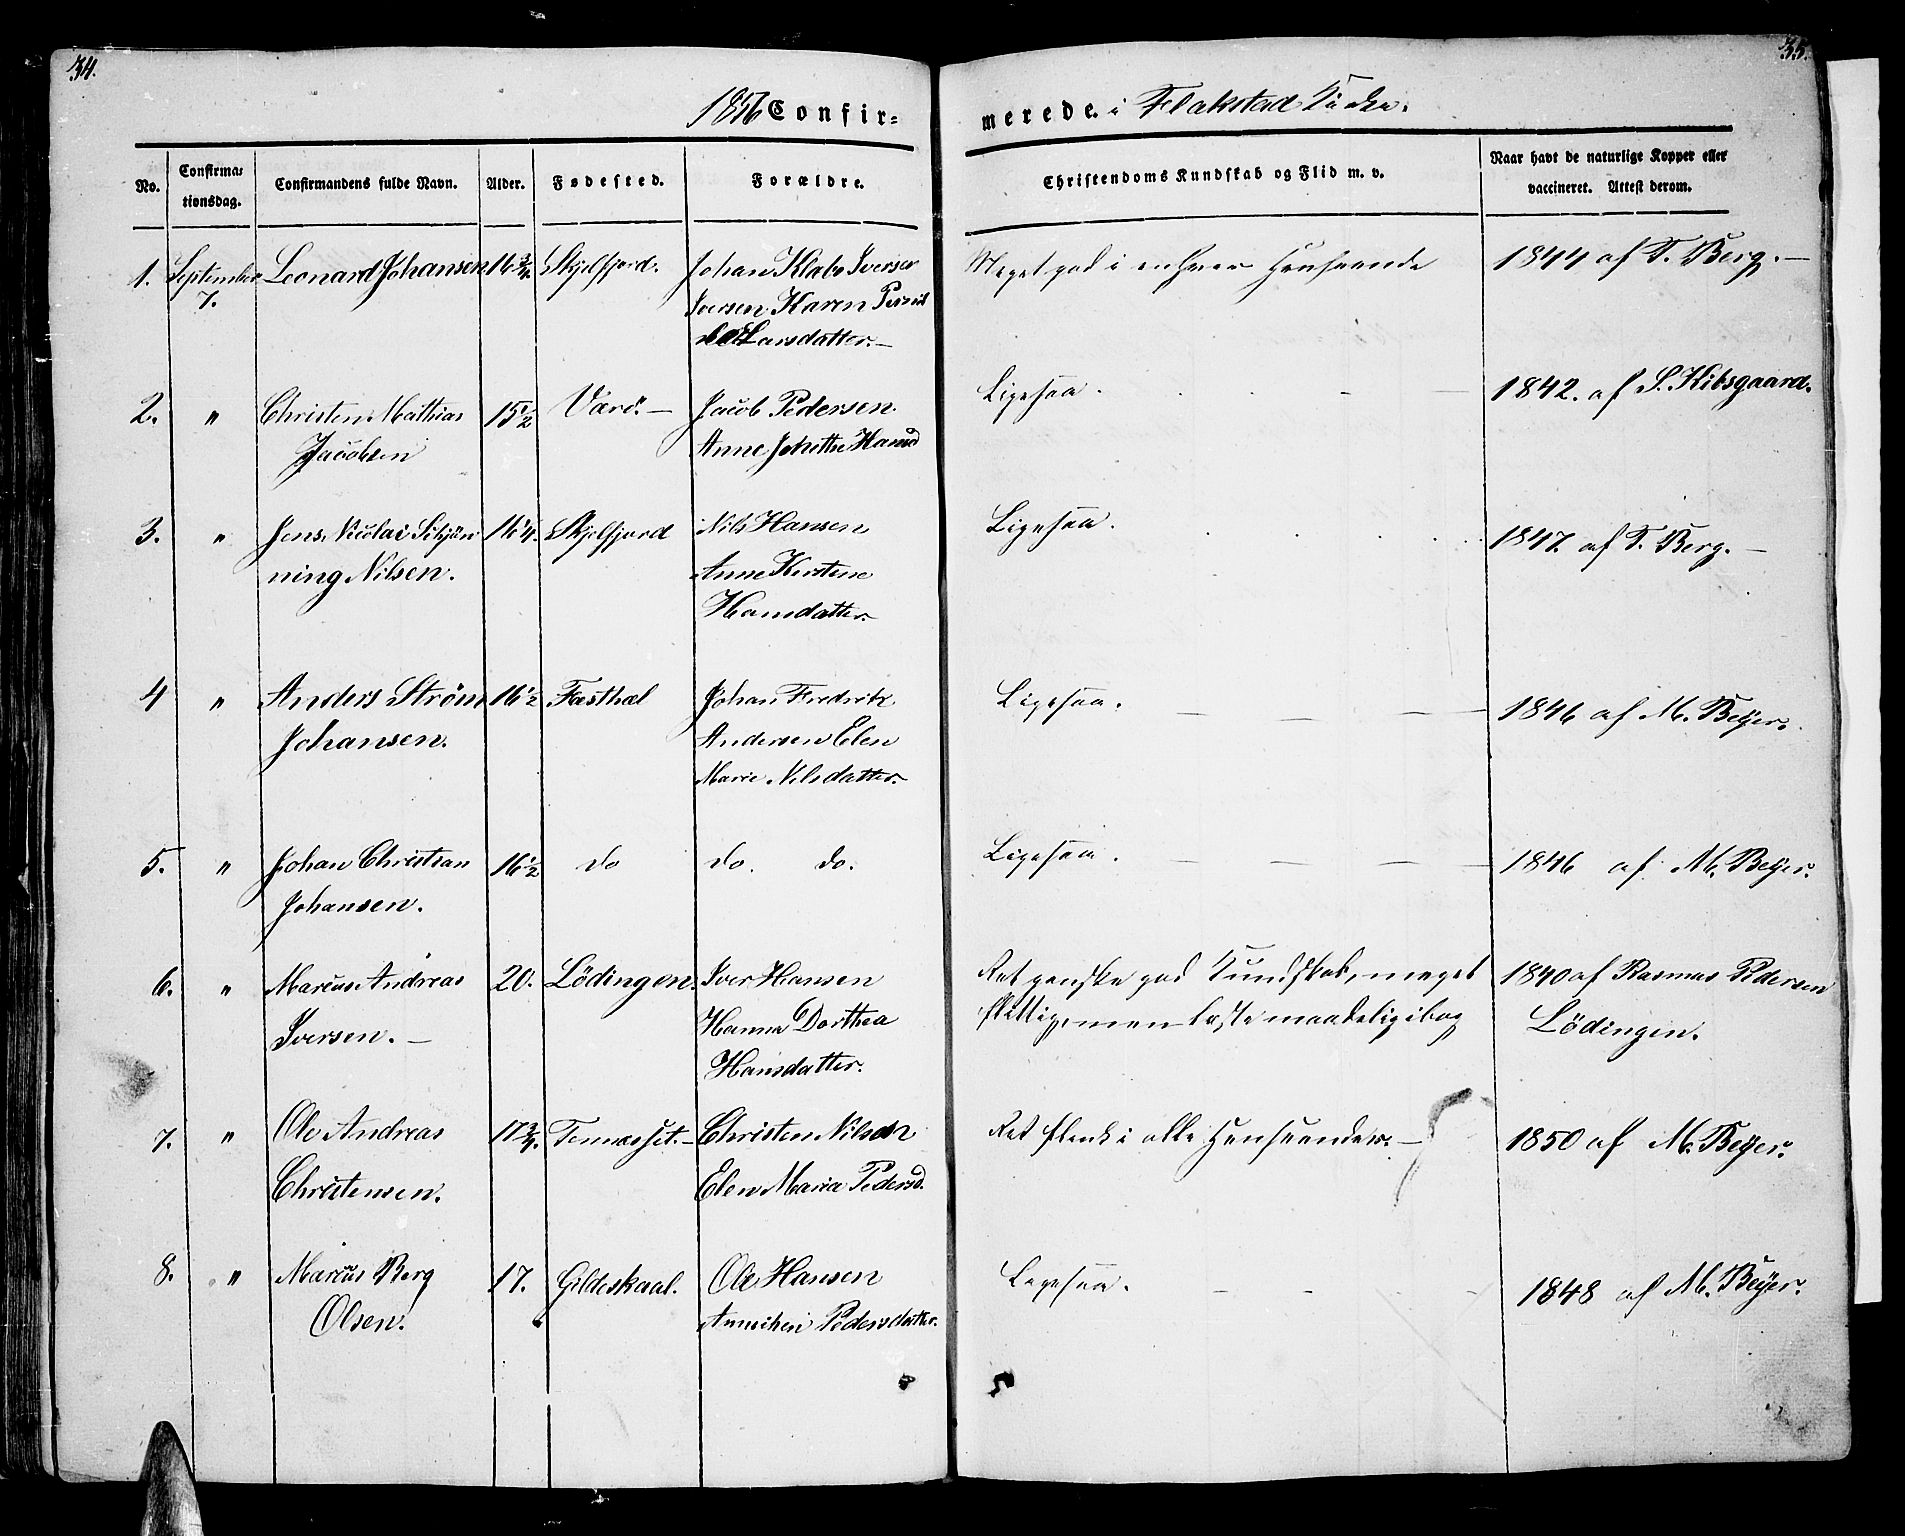 34.
35.
1856 Confir=
merede. i Flakstad Kirke.
No.
Confirma=
tionsdag.
Confirmandens fulde Navn.
Alder.
Fødested.
Forældre.
Christendoms Kundskab og Flid m. v.
Naar havt de naturlige Kopper eller
vaccineret. Attest derom.
1. September Leonard Johansen 16 3/4 Skjelfjord. Johan Klabo Iversen Meget god i enhver Henseende 1844 af T. Berg. —
7. Iversen, Karen
Larsdatter. —
2. " Christen Mathias 15 1/2 Værö. — Jacob Pedersen. Ligesaa. 1842. af S. Kibsgaard.
Jacobsen Anne Jakethe Hansd
3. " Jens Nicolai Schjön 16 1/4. Skjelfjord Nils Hansen Ligesaa. 1847. af T. Berg. —
ning Nilsen. Anne Kirstine
Hansdatter.
4 " Anders Ström 16 1/2 Fæsthæl Johan Fredrik Ligesaa. — — — 1846 af M. Beÿer.
Johansen. Andersen Elen
Marie Nilsdatter.
5. " Johan Christian 16 1/2 do do. do. Ligesaa. — — — 1846 af M. Beÿer.
Johansen.
6. " Marcus Andreas 20. Lödingen. Iver Hansen Ret ganske god Kundskab, meget 1840 af Rasmus Pedersen
Iversen. — Hanna Dorthea flittig, men læste maadelig i bog Lödingen.
Hansdatter.
7. " Ole Andreas 17 3/4. Tennæsset. — Christen Nilsen Ret flink i alle Henseender. — 1850 af M. Beÿer.
Christensen. Elen Maria Pedersd.
8. " Marcus Berg 17. Gildeskaal. Ole Hansen Ligesaa. 1848 af M. Beÿer.
Olsen. Annichen Pedersdatter.